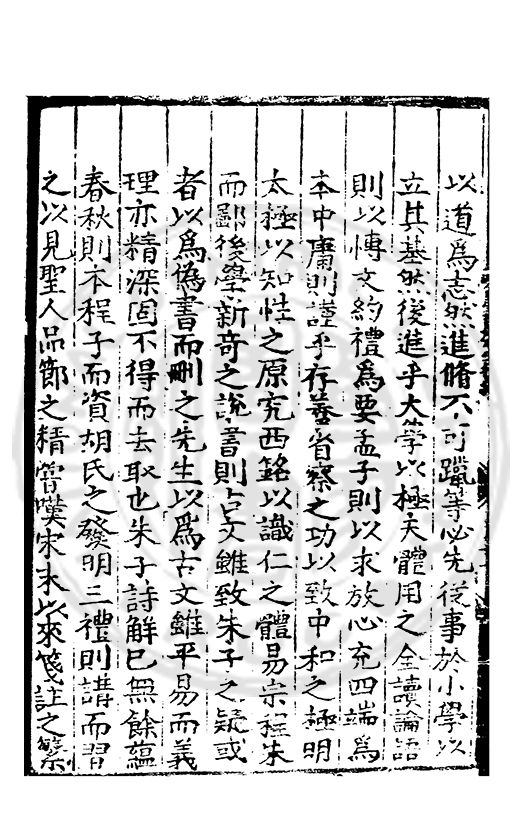 以道爲志然進脩不可躐等必先從事於小學以
立其基然後進乎大學以極天體用之全讀論語
則以博文約禮爲要孟子則以求放心充四端爲
本中庸則謹乎存養省察之功以致中和之極明
太極以知性之原究西銘以識仁之體易宗程朱
而鄙後學新奇之說書則占文雖致朱子之疑或
者以爲僞書而刪之先生以爲古文雖平易而義
理亦精深固不得而去取也朱子詩解已無餘蘊
春秋則本程子而資胡氏之發明三禮則講而習
之以見聖人品節之精嘗嘆宋末以來箋註之繁